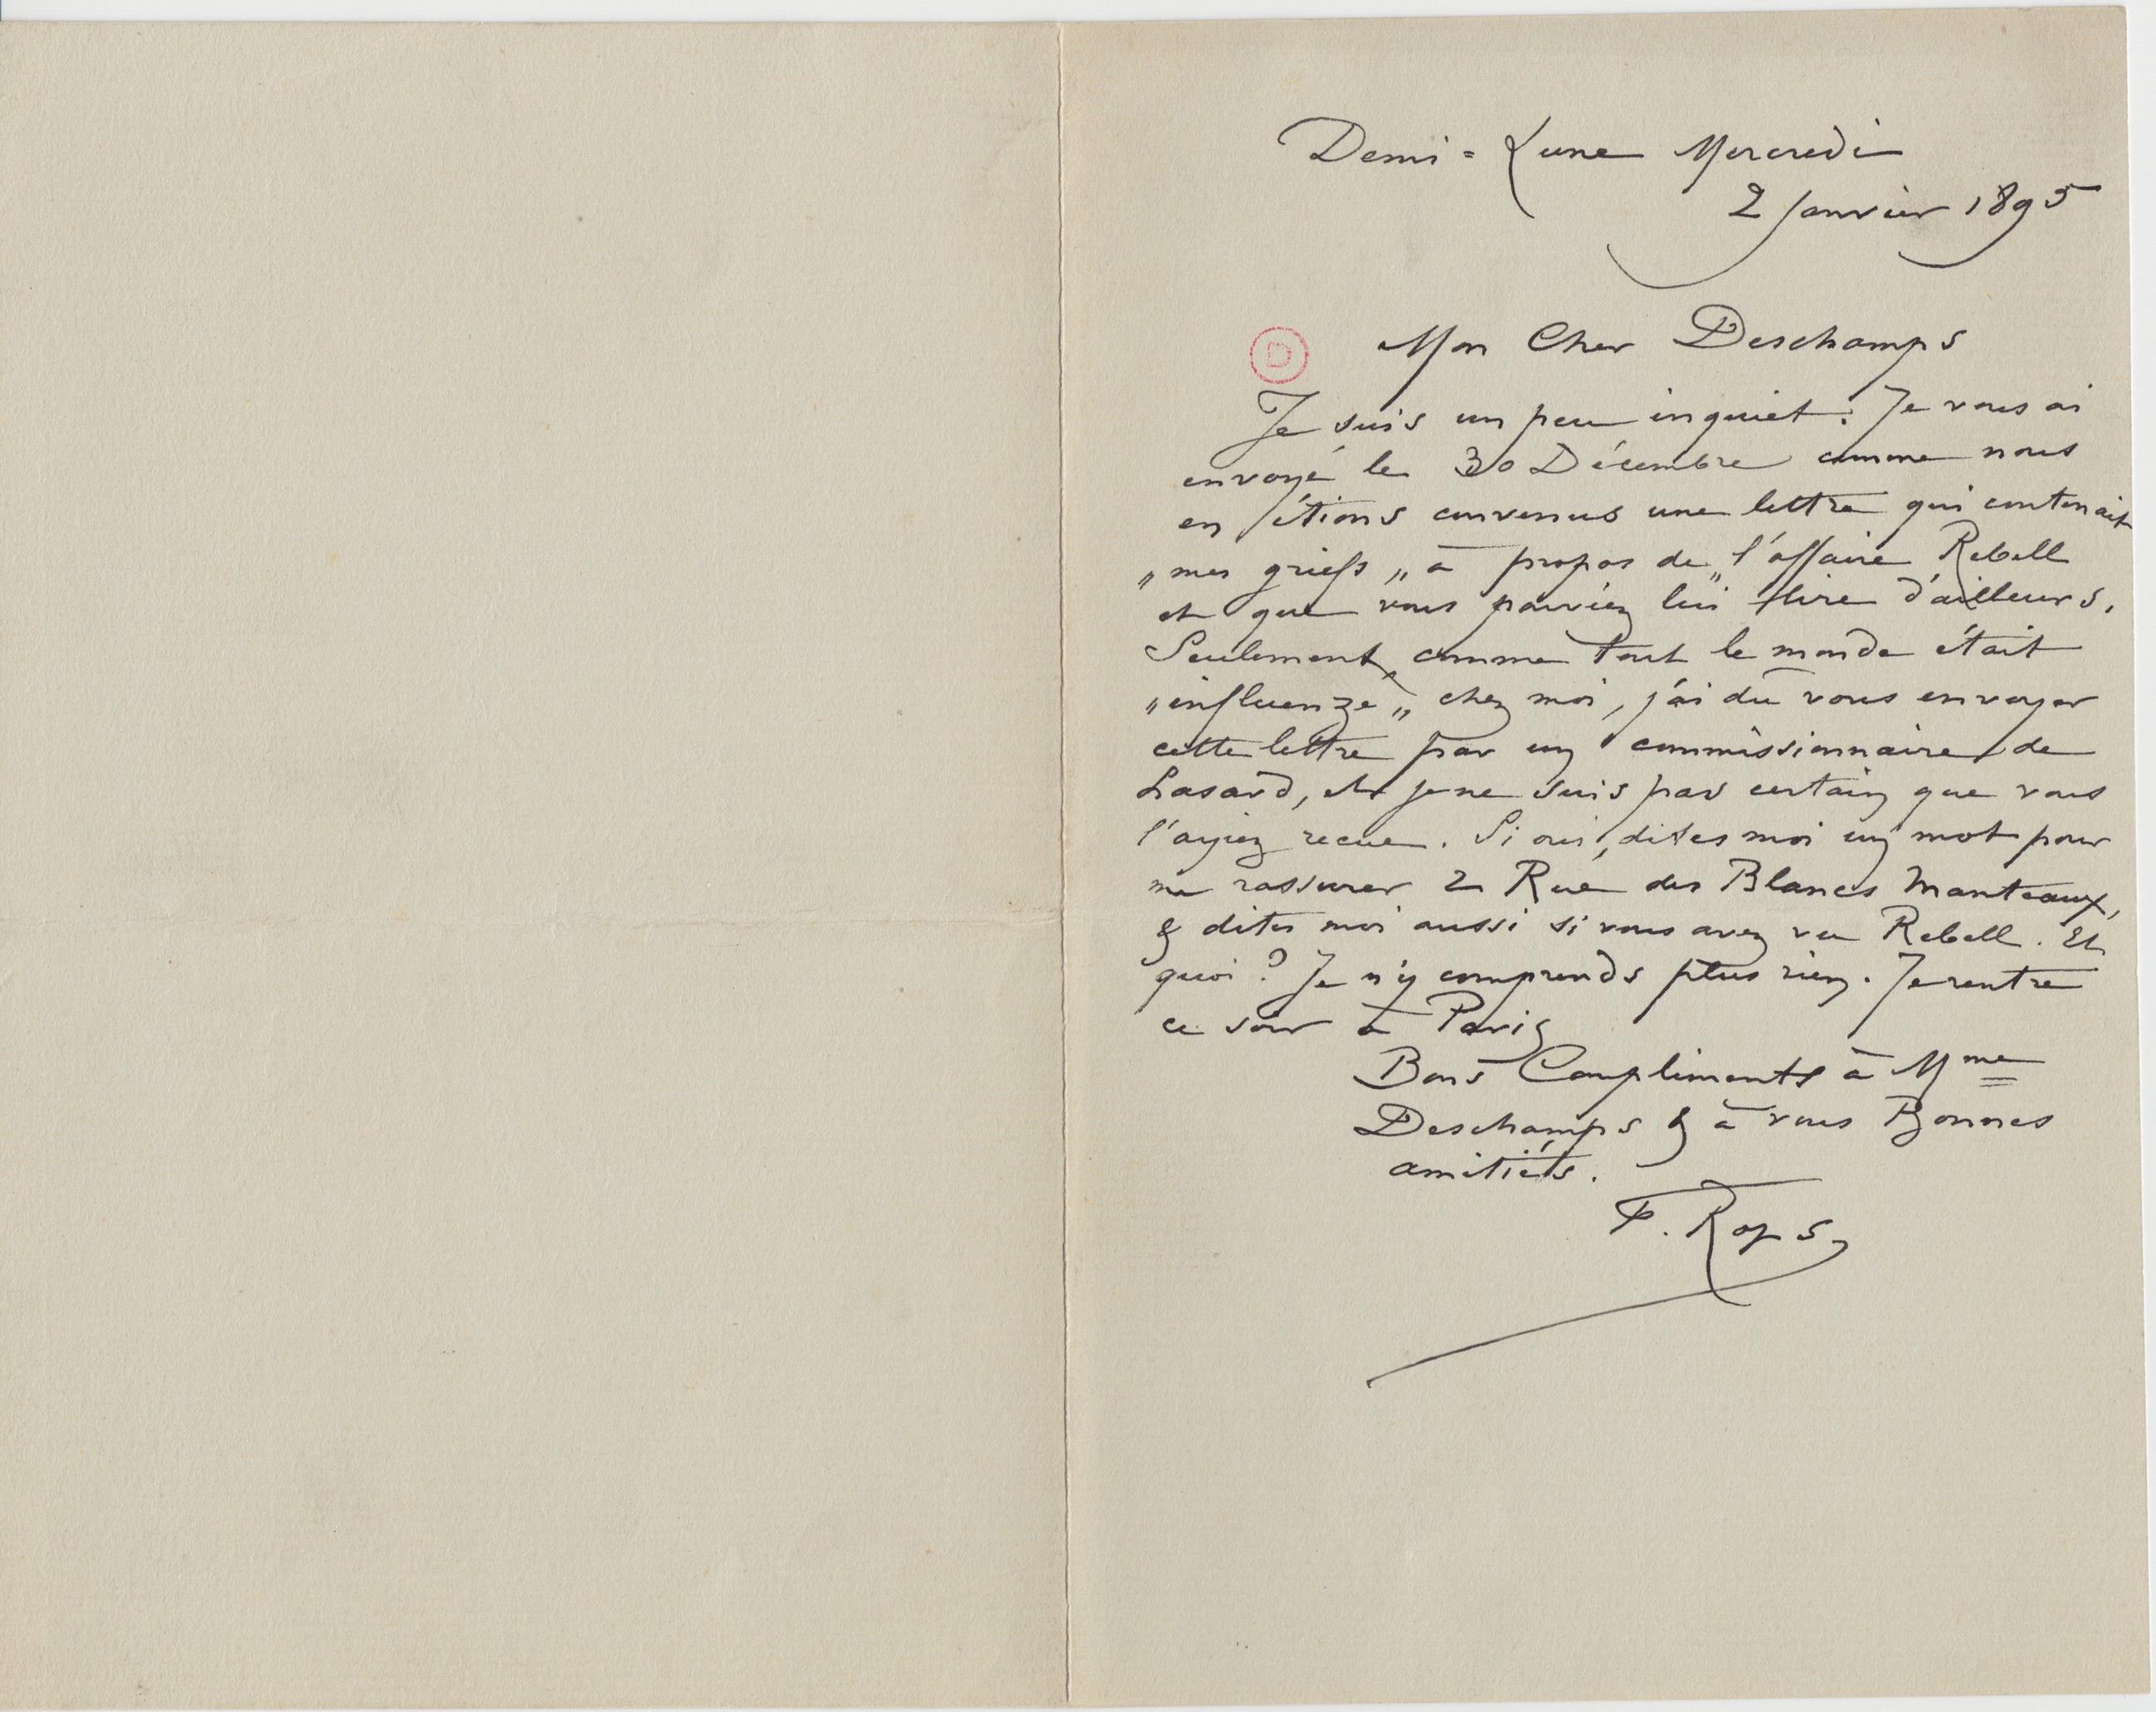 Demi = Lune Mercredi
2 Janvier 1895
D
Mon Cher Deschamps
Je suis un peu inquiet : Je vous ai
envoyé le 30 Décembre comme nous
en étions convenus une lettre qui contenait
„mes griefs„ à propos de „l'affaire Rebell
et que vous pouviez lui lire d'ailleurs.
Seulement, comme tout le monde était
„influenzé„ chez moi, j'ai dû vous envoyer
cette lettre par un commissionnaire de
hasard, et je ne suis pas certain que vous
l'ayiez recue. Si oui, dites moi un mot pour
me rassurer 2 Rue des Blancs Manteaux,
& dites moi aussi si vous avez vu Rebell. Et
quoi ? Je n'y comprends plus rien. Je rentre
ce soir à Paris
Bons Compliments à Mme
Deschamps & à vous Bonnes
amitiés.
F. Rops